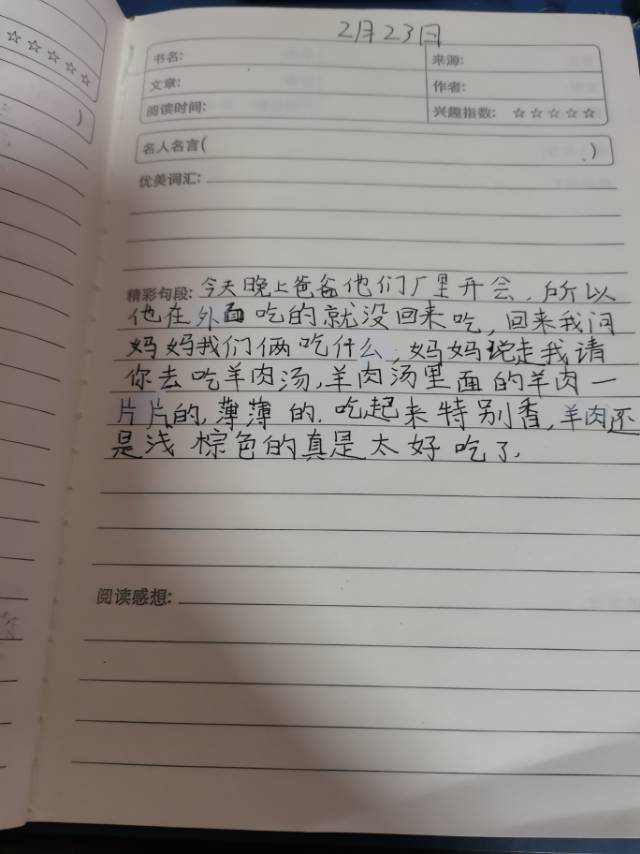 2月23日
书名:
来源:
文章:
作者:
阅读时间:
兴趣指数: ☆☆☆☆☆
名人名言( )
优美词汇:
精彩句段: 今天晚上爸爸他们厂里开会,所以
他在外面吃的就没回来吃,回来我问
妈妈我们俩吃什么,妈妈说走我请
你去吃羊肉汤,羊肉汤里面的羊肉一
片片的,薄薄的.吃起来特别香,羊肉还
是浅棕色的真是太好吃了.
阅读感想: